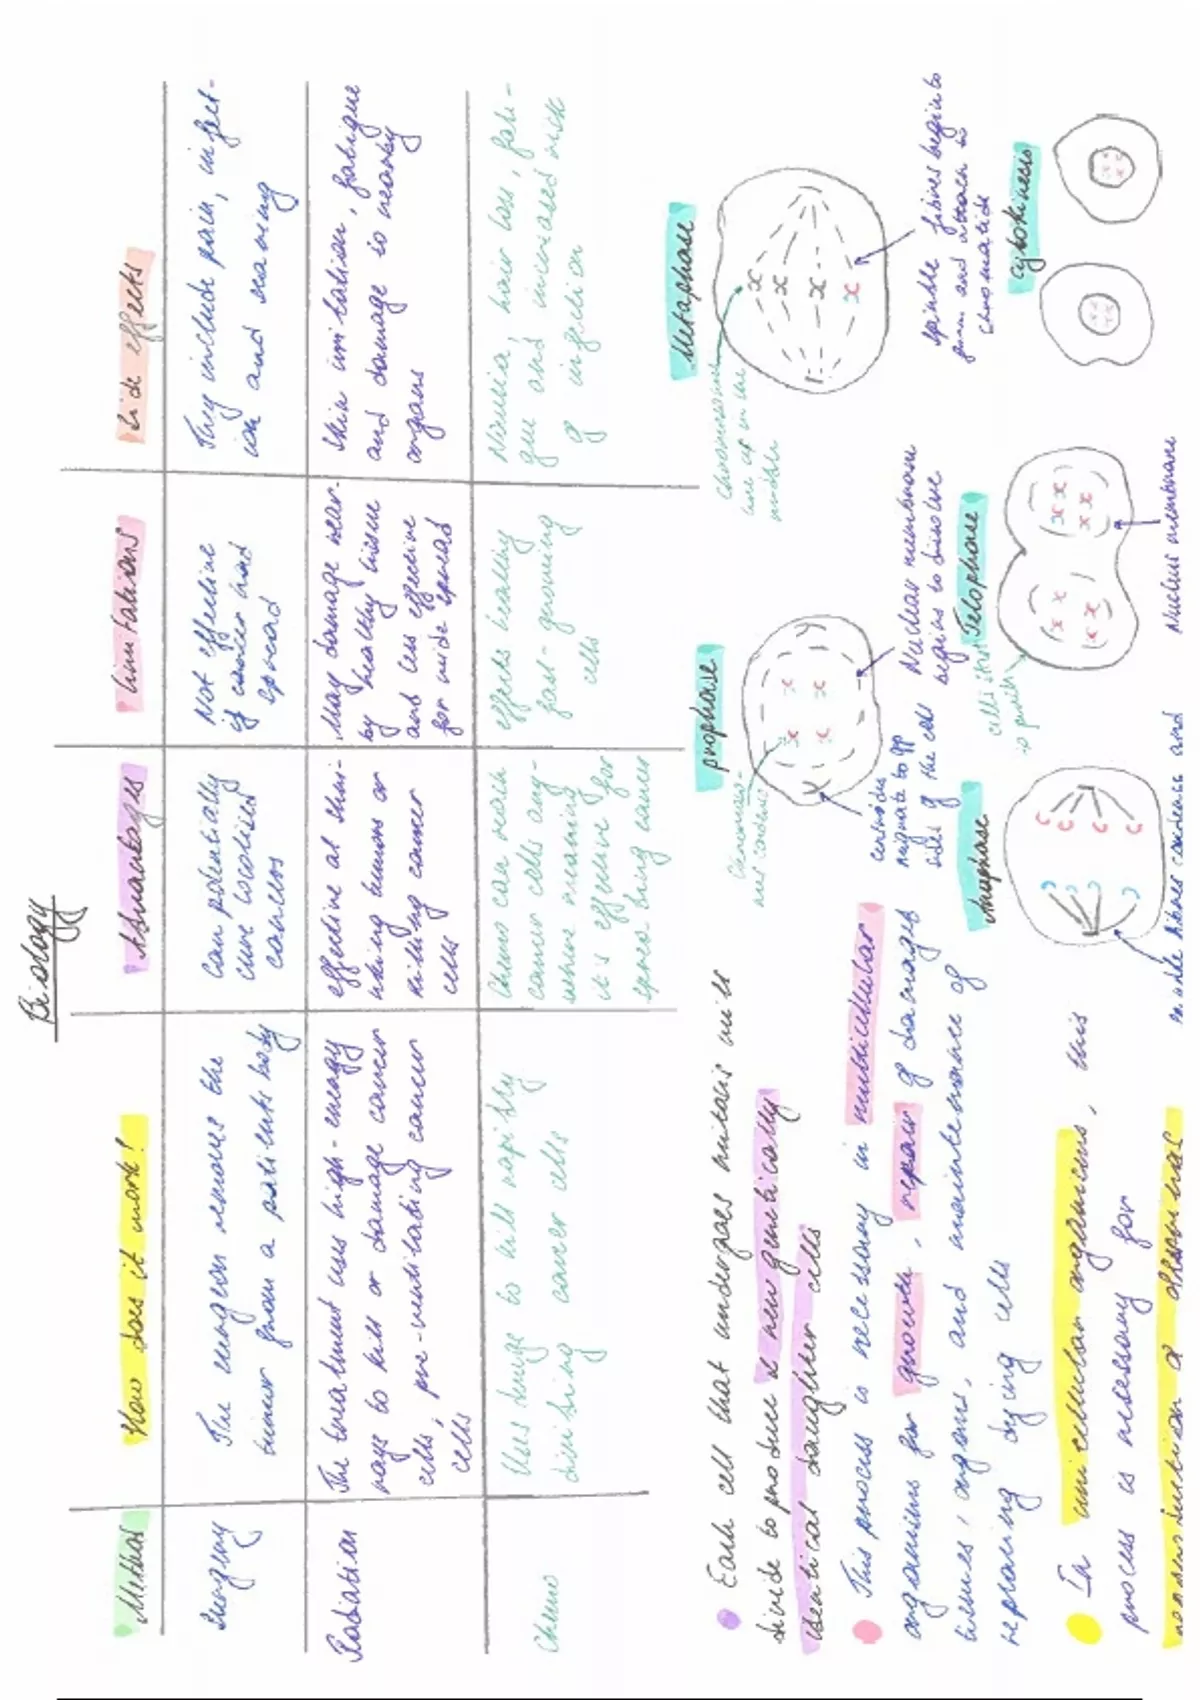 Biology
Method
How does it work!
Advantages
limitations
Side effects
Surgery
The surgeon removes the
tumor from a patients body
Can potentially
cure localised
cancers
Not effective
if cancer had
spread
They include pain, infect-
ion and scarring
Radiation
The treatment uses high-energy
rays to kill or damage cancer
cells, pre-ventilating cancer
cells
effective at shri-
nking tumors or
killing cancer
cells
May damage near-
by healthy tissue
and less effective
for wide spread
Skin irritation, fatigue
and damage to nearby
organs
Chemo
Uses drugs to kill rapidly
dividing cancer cells
Chemo can reach
cancer cells any-
where meaning
it's effective for
spreading cancer
effects healthy
fast-growing
cells
Nausea, hair loss, fati-
gue and increased risk
of infection
Each cell that undergoes mitosis will
divide to produce 2 new genetically
identical daughter cells
This process is necessary in multicellular
organisms for growth, repair of damaged
tissues, organs, and maintenance of
replacing dying cells
In unicellular organisms, this
process is necessary for
reproduction a
prophase
Chromoso-
mes condense
centrioles
migrate to opp
side of the cell
Nuclear membrane
begins to dissolve
Metaphase
Chromosomes
line up in the
middle
Spindle fibres begin to
form and attach to
chromatids
Anaphase
fibres and
Telophase
cells start
to pinch
Nucleus membrane
Cytokinesis